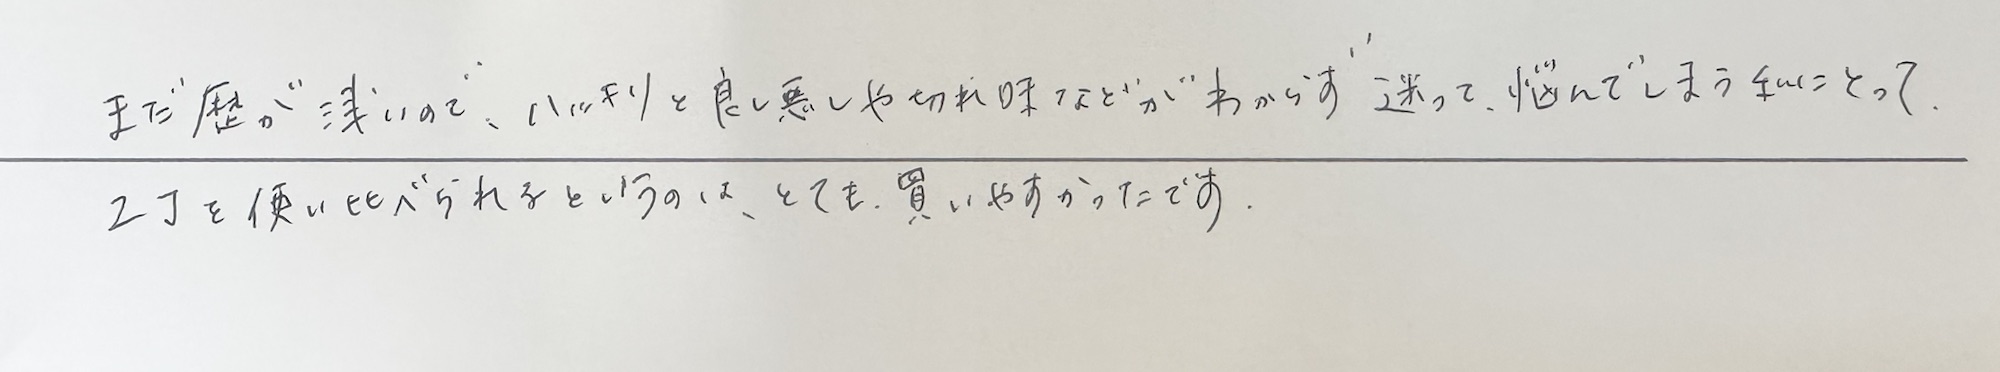 まだ歴が浅いので、ハッキリと良し悪しや切れ味などがわからず迷って、悩んでしまう私にとって、
2丁を使い比べられるというのは、とても、買いやすかったです.